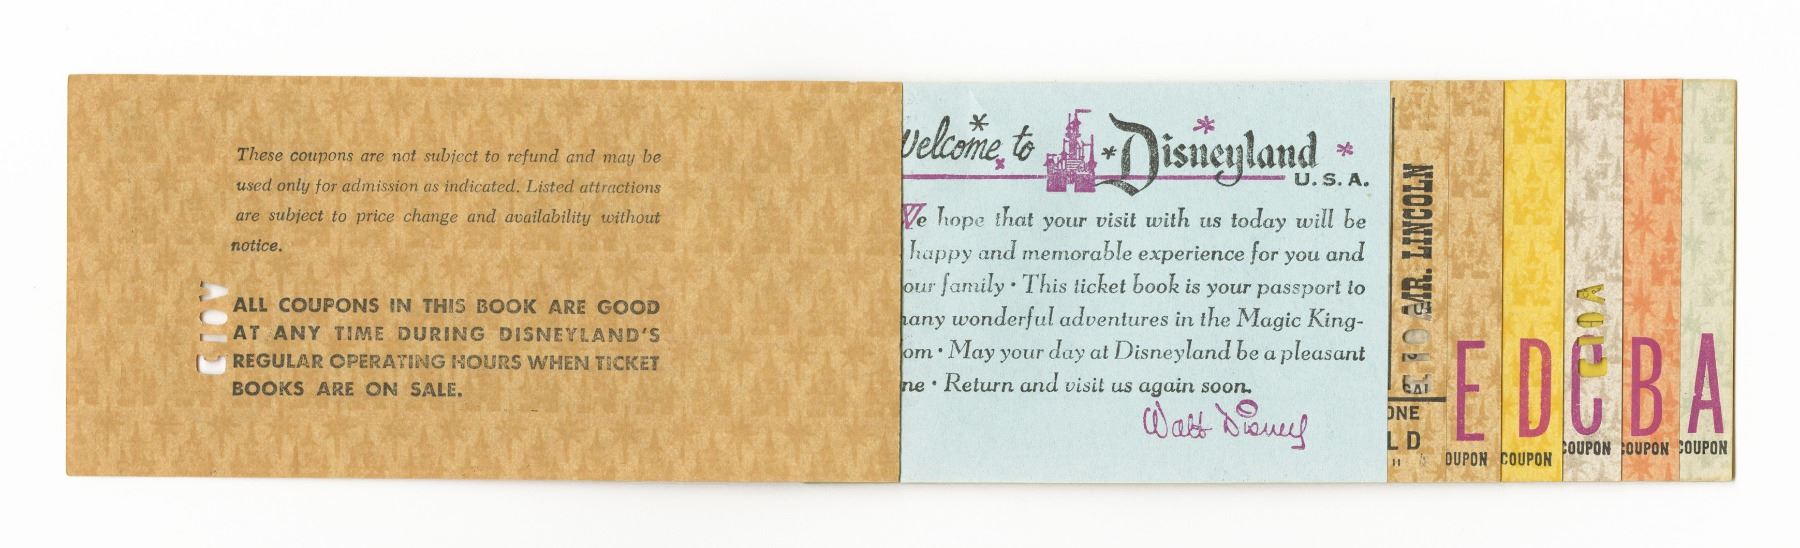 These coupons are not subject to refund and may be
used only for admission as indicated. Listed attractions
are subject to price change and availability without
notice.
VOID
ALL COUPONS IN THIS BOOK ARE GOOD
AT ANY TIME DURING DISNEYLAND'S
REGULAR OPERATING HOURS WHEN TICKET
BOOKS ARE ON SALE.
Welcome to Disneyland
U.S.A.
We hope that your visit with us today will be
happy and memorable experience for you and
our family • This ticket book is your passport to
many wonderful adventures in the Magic King-
om • May your day at Disneyland be a pleasant
ne • Return and visit us again soon.
Walt Disney
MR. LINCOLN
ONE
LD
E
OUPON
D
COUPON
C
COUPON
VOID
B
COUPON
A
COUPON